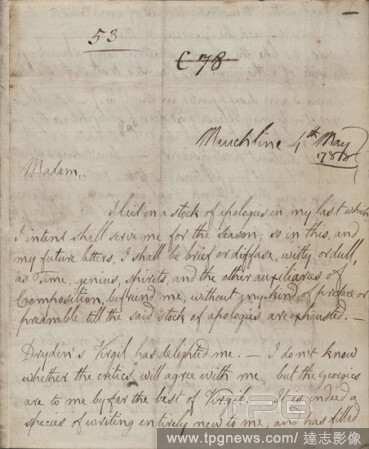 53
C 78
Mauchline 4th May
1788
Madam,
I laid in a stock of apologies in my last which
I intend shall serve me for the season; so in this, and
my future letters, I shall be brief or diffuse, witty or dull,
as Time, genius, spirits, and the other auxiliaries of
Composition, befriend me, without any kind of preface or
preamble till the said stock of apologies are exhausted. —
Dryden's Virgil has delighted me. — I do n't know
whether the critics will agree with me, but the Georgics
are to me by far the best of Virgil. It is indeed a
species of writing entirely new to me, and has filled
TPG
www.tpgnews.com/達志影像